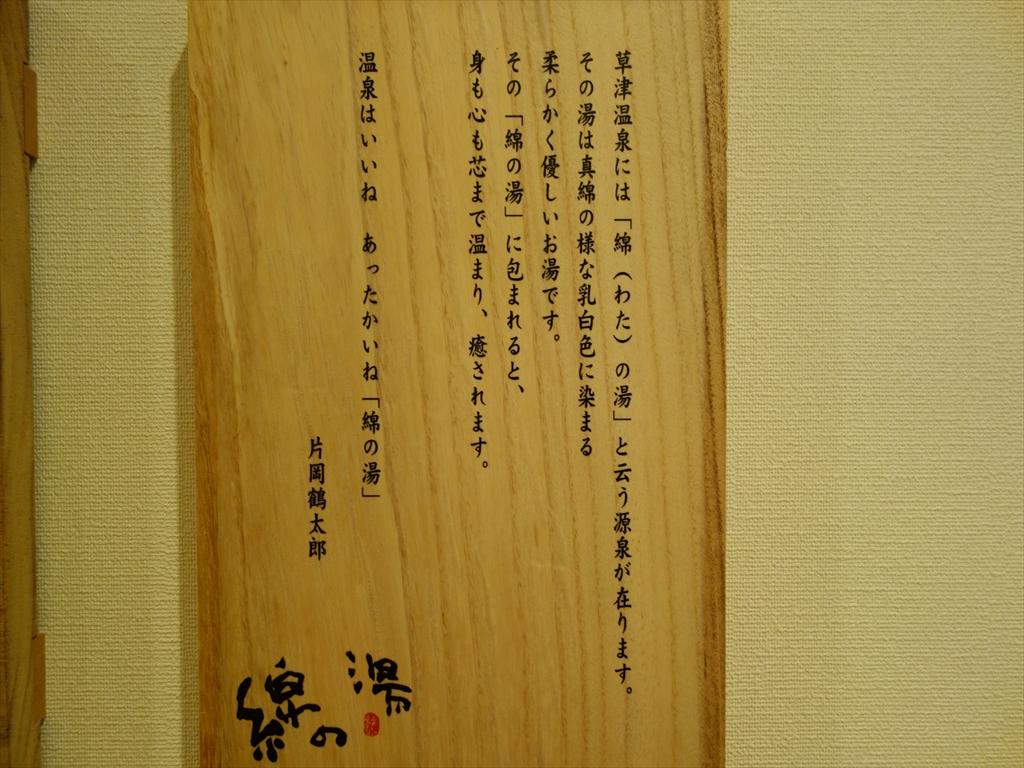 草津温泉には「綿（わた）の湯」と云う源泉が在ります。
その湯は真綿の様な乳白色に染まる
柔らかく優しいお湯です。
その「綿の湯」に包まれると、
身も心も芯まで温まり、癒されます。
温泉はいいね　あったかいね「綿の湯」
片岡鶴太郎
綿の湯